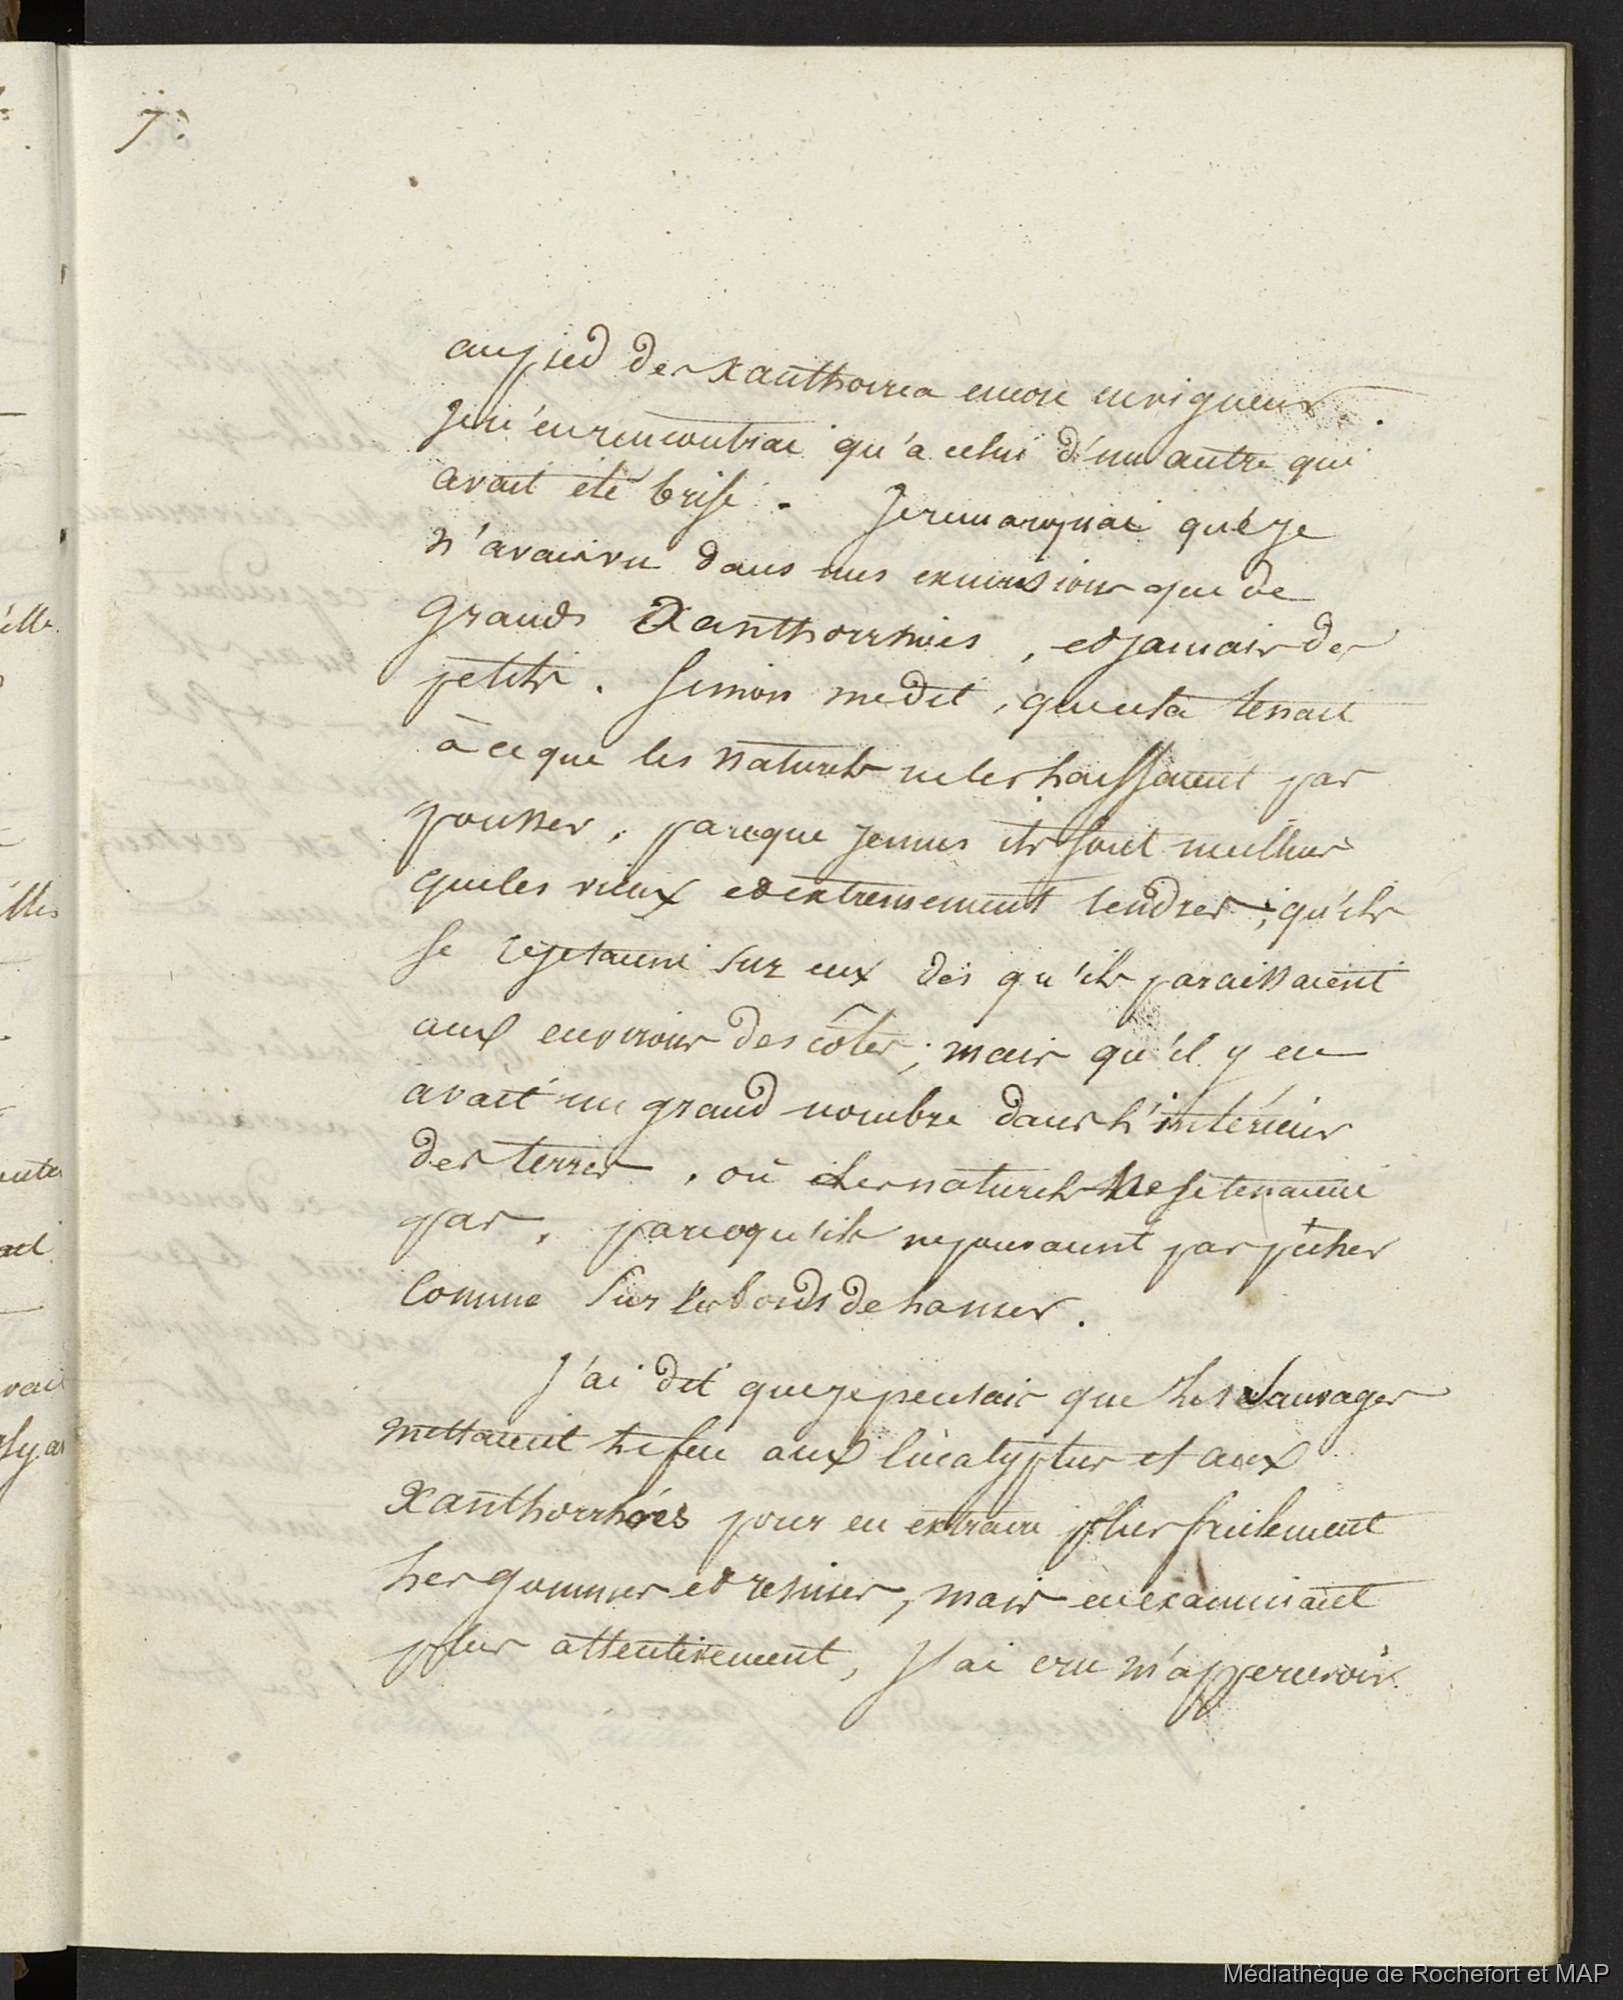 7.
au pied des Xanthorrea encore en vigueur.
Je n'en rencontrai qu'à celui d'un autre qui
avait été brisé. Je remarquai que je
n'avais vu dans mes excursions que de
grands Xanthorrhées, et jamais de
petits. Simon me dit, que cela tenait
à ce que les naturels ne les laissaient pas
pousser, parceque jeunes ils sont meilleurs
que les vieux et extremement tendres; qu'ils
se rejetaient sur eux dès qu'ils paraissaient
aux environs des côtes; mais qu'il y en
avait un grand nombre dans l'intérieur
des terres, où les naturels ne se tenaient
pas, parcequ'ils ne pouvaient pas pêcher
comme sur les bords de la mer.
J'ai dit que je pensais que les Sauvages
mettaient le feu aux Eucalyptus et aux
Xanthorrhées pour en extraire plus facilement
les gommes et resines, mais en examinant
plus attentivement, j'ai cru m'appercevoir
élle
illes
vait
Médiathèque de Rochefort et MAP